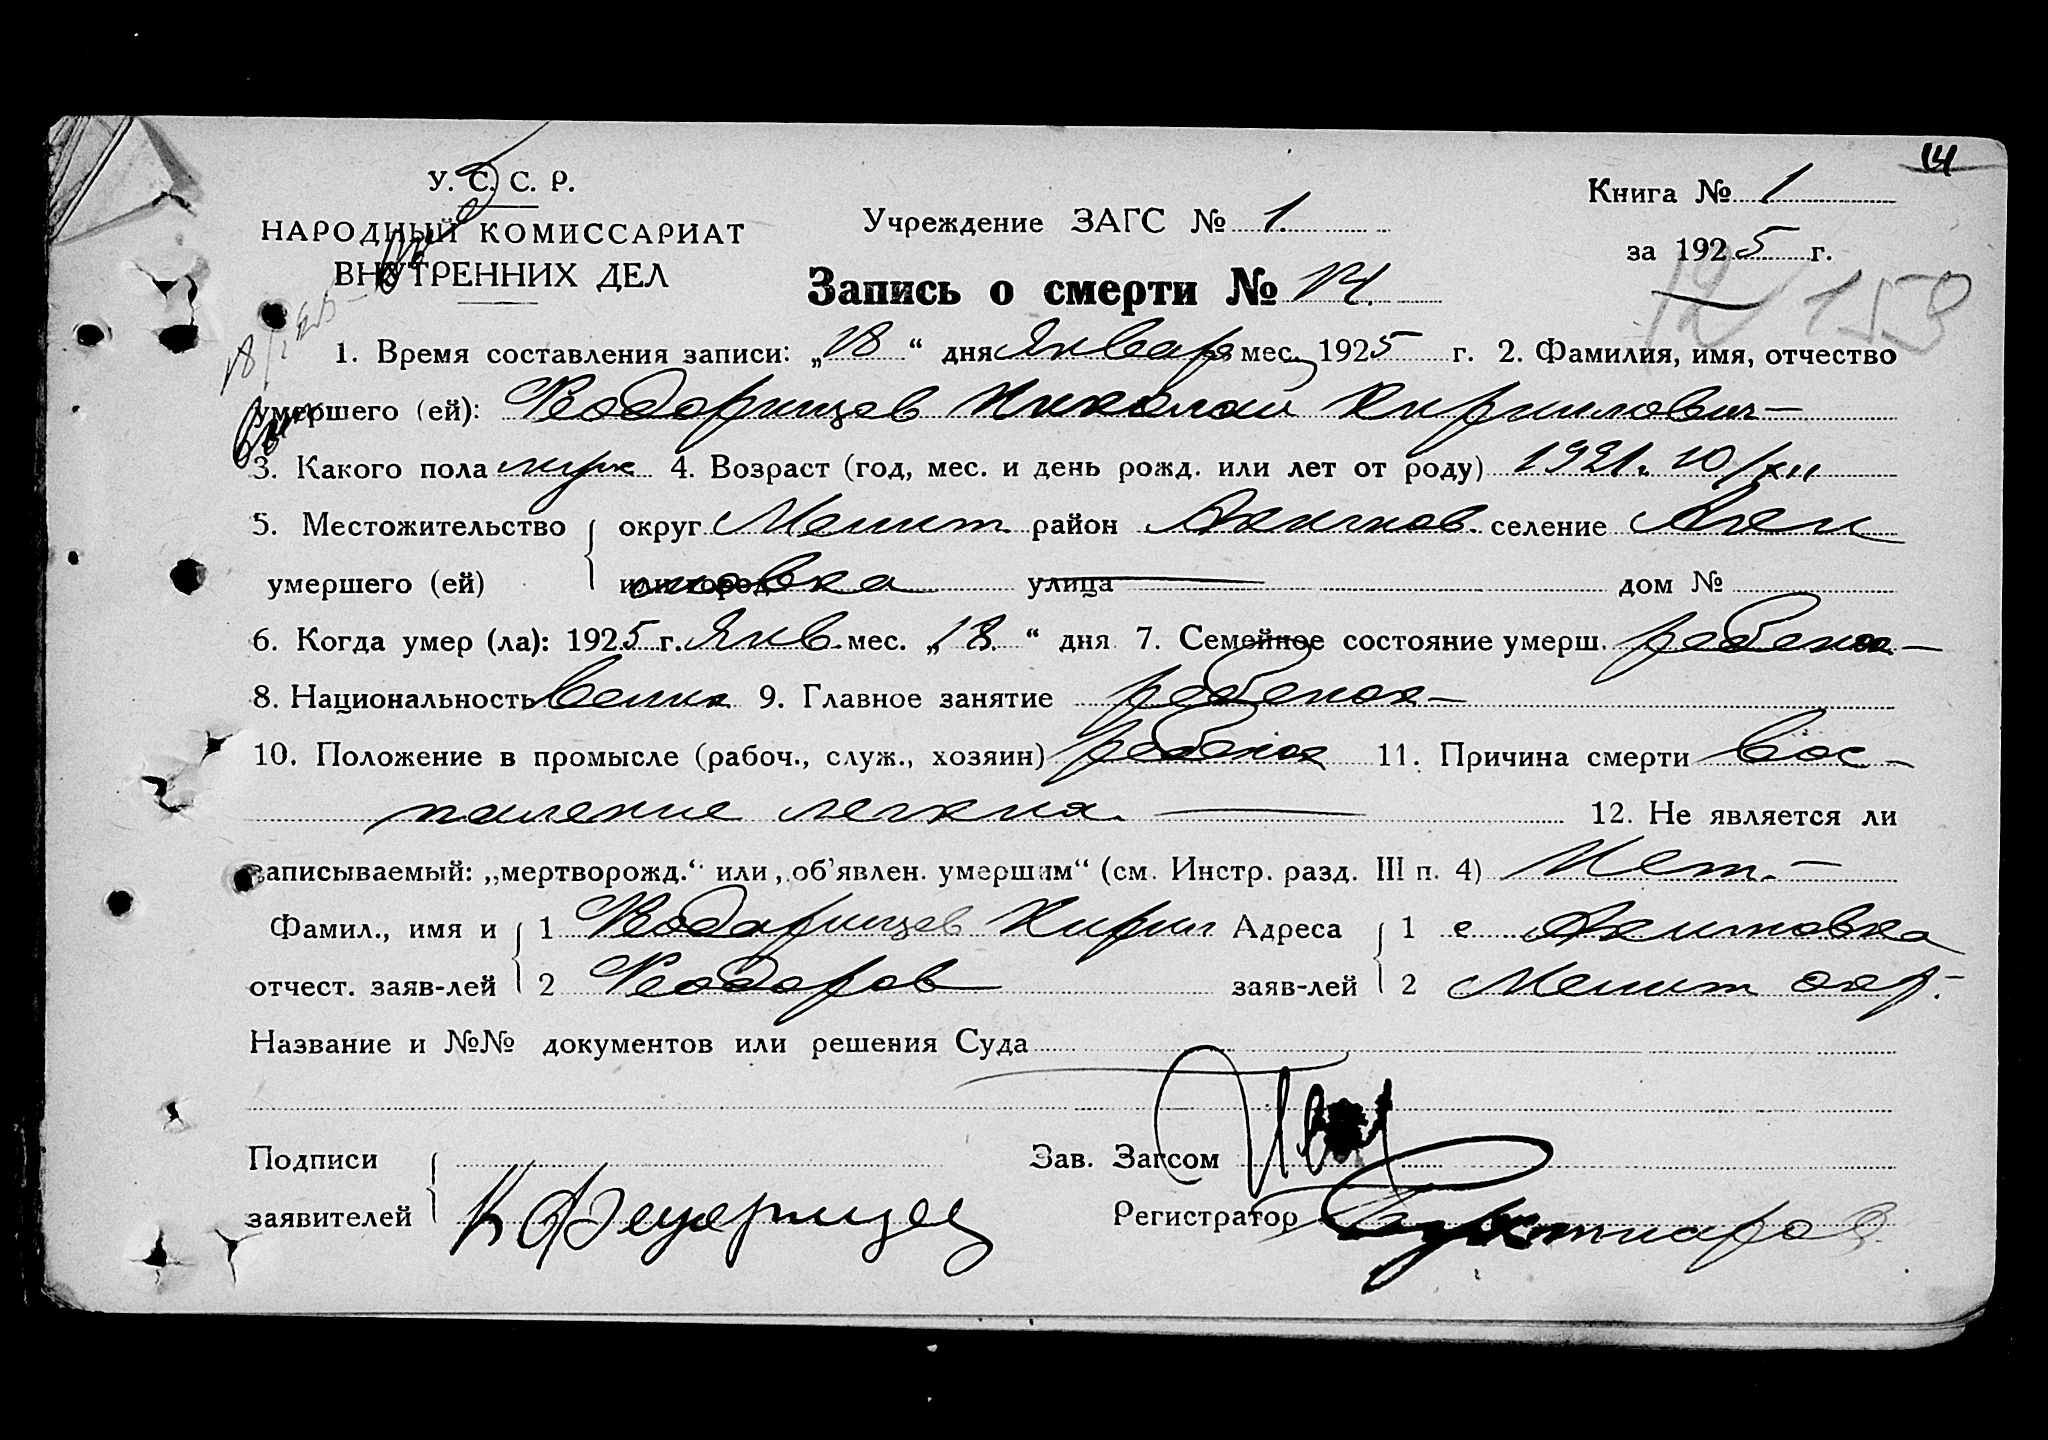 14
У. С. С. Р.
НАРОДНЫЙ КОМИССАРИАТ
ВНУТРЕННИХ ДЕЛ
Учреждение ЗАГС № 1.
Книга № 1
за 1925 г.
Запись о смерти № 14.
12 153
1. Время составления записи: „18“ дня Января мес. 1925 г. 2. Фамилия, имя, отчество
умершего (ей): Николай Кирилович
3. Какого пола муж 4. Возраст (год, мес. и день рожд. или лет от роду) 1921 г. 10/XII
5. Местожительство округ Мелит. район Акимов. селение Аки
умершего (ей) или город мовка улица — дом №
6. Когда умер (ла): 1925 г. Янв. мес. „18“ дня 7. Семейное состояние умерш. ребенок
8. Национальность Велик 9. Главное занятие ребенок
10. Положение в промысле (рабоч., служ., хозяин) ребенок 11. Причина смерти Вос-
паление легких. — 12. Не является ли
записываемый: „мертворожд.“ или „об'явлен. умершим“ (см. Инстр. разд. III п. 4) Нет.
Фамил., имя и 1 Кирил Адреса 1 с Акимовка
отчест. заяв-лей 2 заяв-лей 2 Мелит окр.
Название и №№ документов или решения Суда
Подписи Зав. Загсом
заявителей Регистратор